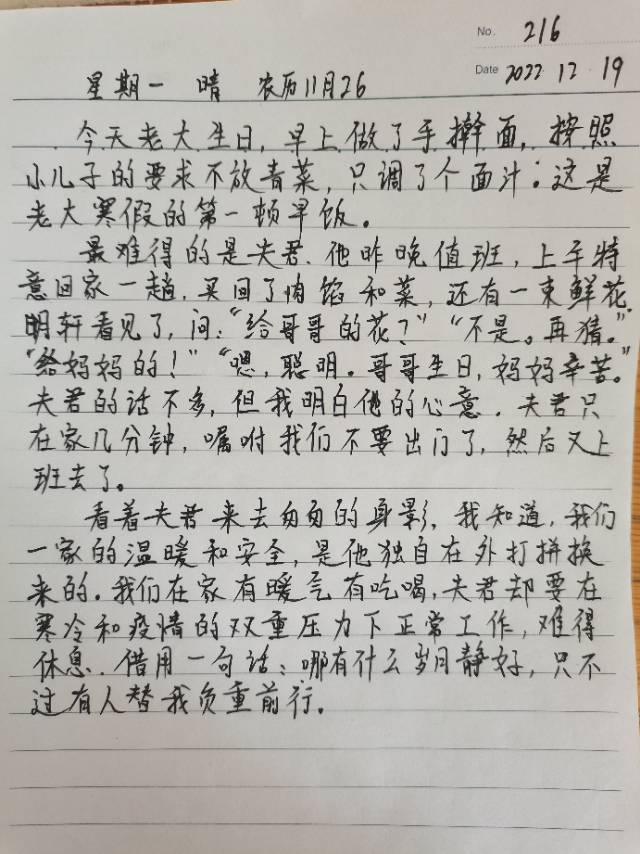 No. 216
Date 2022 12 19
星期一 晴 农历11月26
今天老大生日，早上做了手擀面，按照
小儿子的要求不放青菜，只调了个面汁：这是
老大寒假的第一顿早饭。
最难得的是夫君、他昨晚值班，上午特
意回家一趟，买回了肉馅和菜，还有一束鲜花，
明轩看见了，问：“给哥哥的花？”“不是。再猜。”
“给妈妈的！”“嗯，聪明。哥哥生日，妈妈辛苦。”
夫君的话不多，但我明白他的心意．夫君只
在家几分钟，嘱咐我们不要出门了，然后又上
班去了。
看着夫君来去匆匆的身影，我知道，我们
一家的温暖和安全，是他独自在外打拼换
来的．我们在家有暖气有吃喝，夫君却要在
寒冷和疫情的双重压力下正常工作，难得
休息．借用一句话：哪有什么岁月静好，只不
过有人替我负重前行。